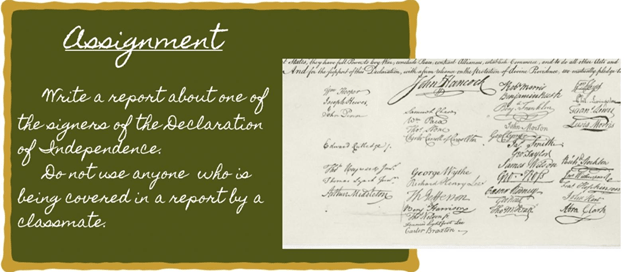 Assignment
Write a report about one of
the signers of the Declaration
of Independence.
Do not use anyone who is
being covered in a report by a
classmate.
States, they have full Power to levy War, conclude Peace, contract Alliances, establish Commerce, and to do all other Acts and
And for the support of this Declaration, with a firm reliance on the Protection of divine Providence, we mutually pledge to
John Hancock
Wm Hooper
Joseph Hewes
John Penn
Edward Rutledge
Thos Heyward Junr
Thomas Lynch Junr
Arthur Middleton
Samuel Chase
Wm Paca
Thos Stone
Charles Carroll of Carrollton
George Wythe
Richard Henry Lee
Th Jefferson
Benj Harrison
Thos Nelson jr
Francis Lightfoot Lee
Carter Braxton
Robt Morris
Benjamin Rush
Benj Franklin
John Morton
Geo Clymer
Jas Smith
Geo Taylor
James Wilson
Geo Ross
Caesar Rodney
Geo Read
Tho M:Kean
Lewis Morris
Richd Stockton
Abra Clark